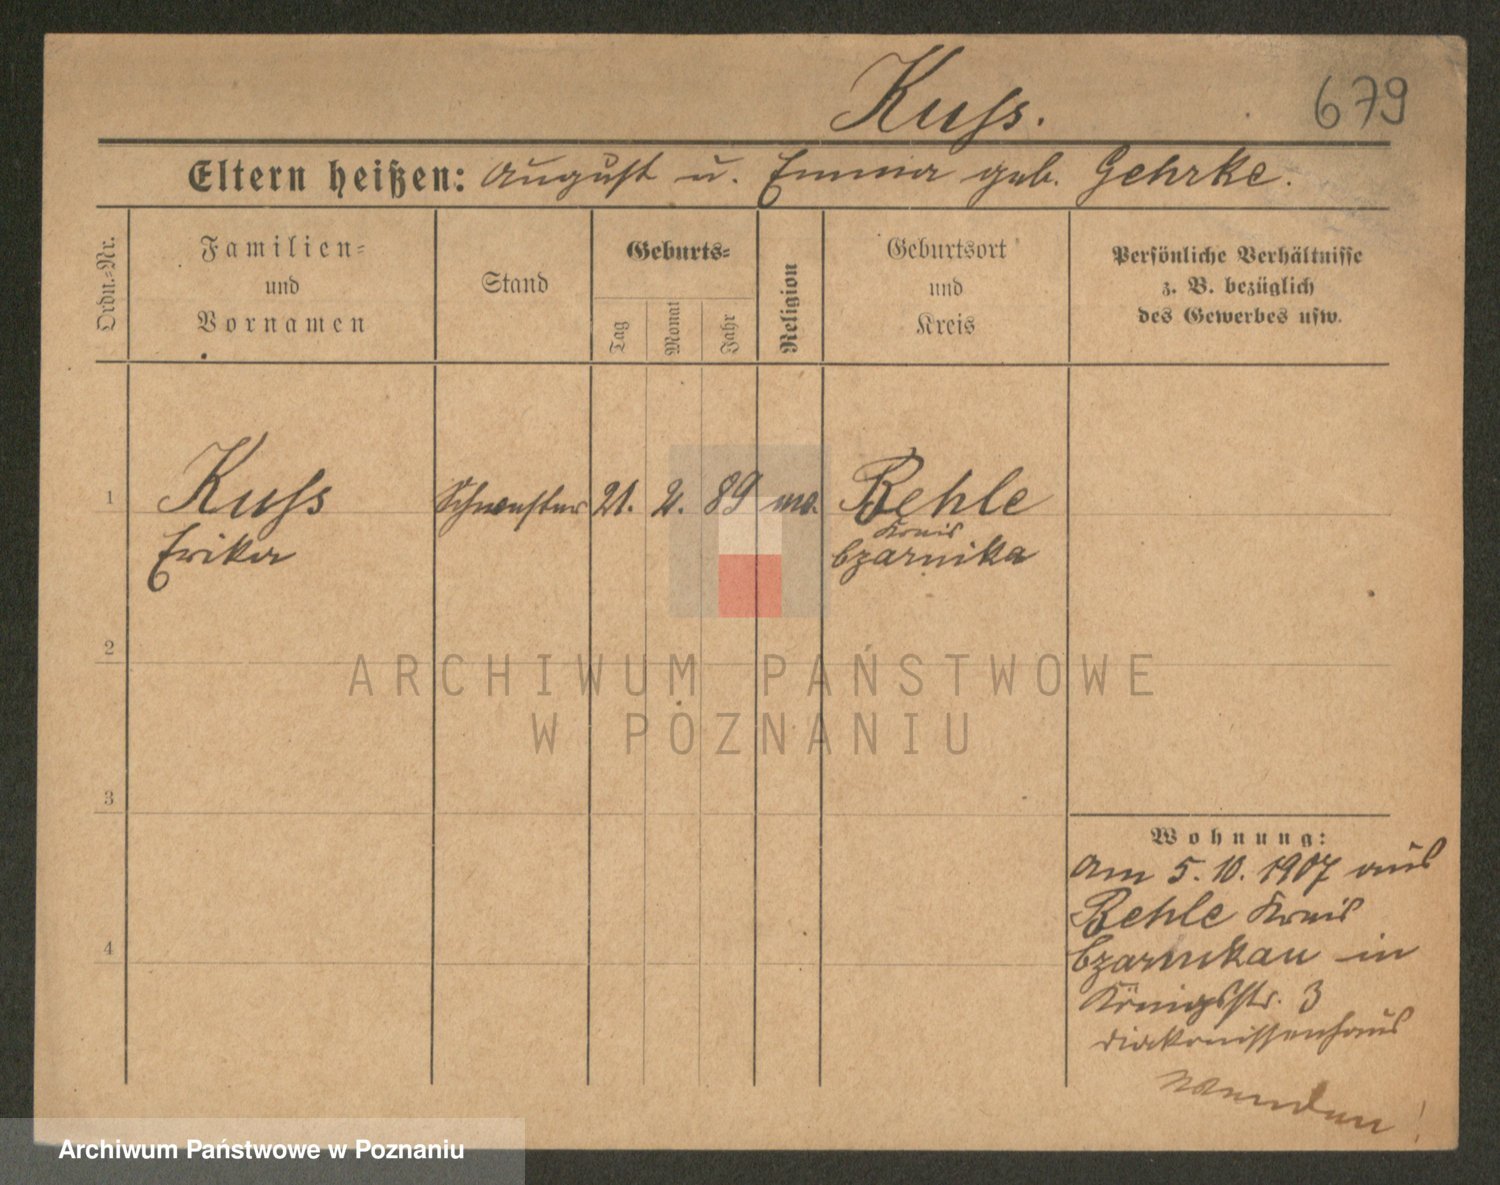 Kuss.
679
Eltern heißen: August u. Emma geb. Gehrke.
Ordn.=Nr.
Familien=
und
Vornamen
Stand
Geburts=
Tag
Monat
Jahr
Religion
Geburtsort
und
Kreis
Persönliche Verhältnisse
z. B. bezüglich
des Gewerbes usw.
1
Kuss
Erika
Schwester
21. 2. 89
Behle
Kreis
Czarnika
2
3
4
Wohnung:
Am 5. 10. 1907 aus
Behle Kreis
Czarnikau in
Königsstr. 3
Diakonissenhaus
Wenden!
ARCHIWUM PAŃSTWOWE
W POZNANIU
Archiwum Państwowe w Poznaniu